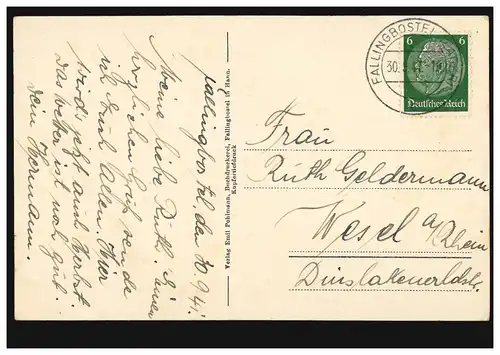 Fallingbostel, den 30.9.41.
Meine liebe Ruth! Einen
herzlichen Gruß sende
ich Euch Allen. Hier
wird's jetzt auch Herbst.
das Wetter ist noch gut.
dein Hermann.
Verlag Emil Pohlmann, Buchdruckerei, Fallingbostel in Hann.
Kupfertiefdruck
FALLINGBOSTEL
30.
6 6
Deutsches Reich
Frau
Ruth Geldermann
Wesel a/Rhein
Dinslakenerldstr.